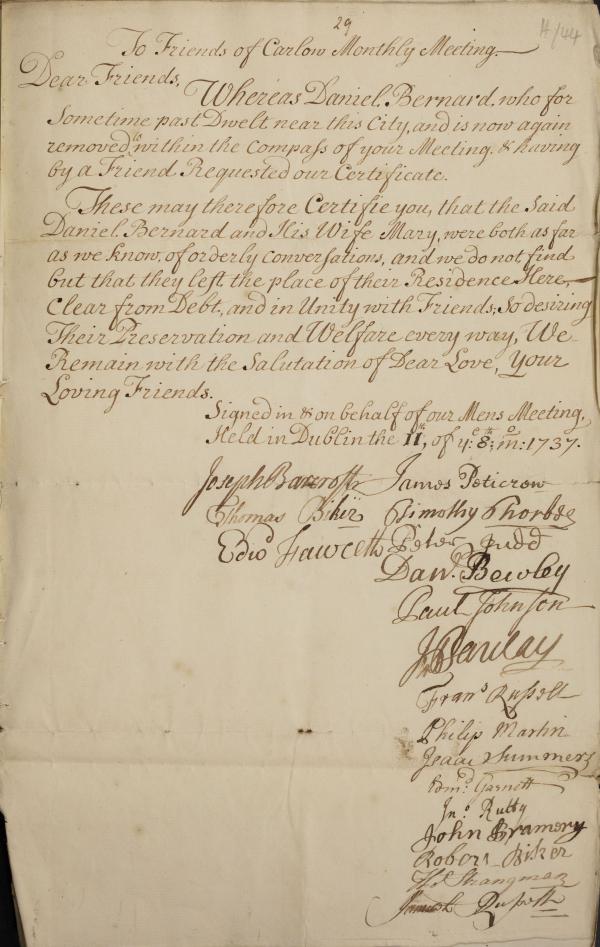 29
H/44
To Friends of Carlow Monthly Meeting.
Dear Friends,
Whereas Daniel Bernard, who for
Sometime past Dwelt near this City, and is now again
removed to within the Compass of your Meeting. & having
by a Friend Requested our Certificate.
These may therefore Certifie you, that the Said
Daniel Bernard and His Wife Mary, were both as far
as we know, of orderly Conversations, and we do not find
but that they left the place of their Residence Here,
Clear from Debt, and in Unity with Friends, So desiring
Their Preservation and Welfare every way, We
Remain with the Salutation of Dear Love, Your
Loving Friends.
Signed in & on behalf of our Mens Meeting,
Held in Dublin the 11th, of ye 8th mo: 1737.
Joseph Barcroft James Peticrow
Thomas Biker Timothy Thorbee
Edwd Fawcett Peter Judd
Danl. Bewley
Paul Johnson
J Barclay
Frans Russell
Philip Martin
Isaac Summers
Edmd Garnett
Jno. Rutty
John Bramery
Robert Biker
Thos Strangman
Samuel Russell